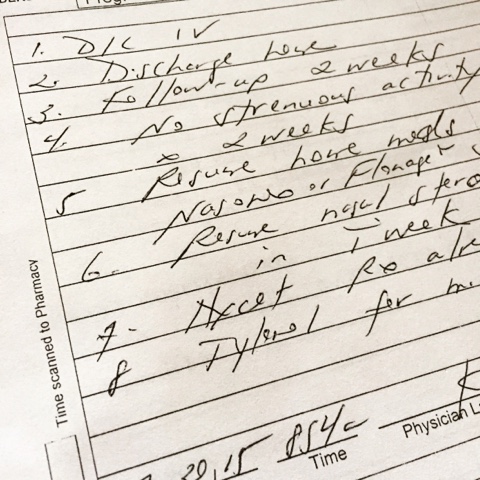 1. D/C IV
2. Discharge home
3. Follow-up 2 weeks
4. No strenuous activity
x 2 weeks
5 Resume home meds
or
6. Resume nasal
in 1 week
7. Rx
8 Tylenol for
Time scanned to Pharmacy
20, 15 854
Time
Physician